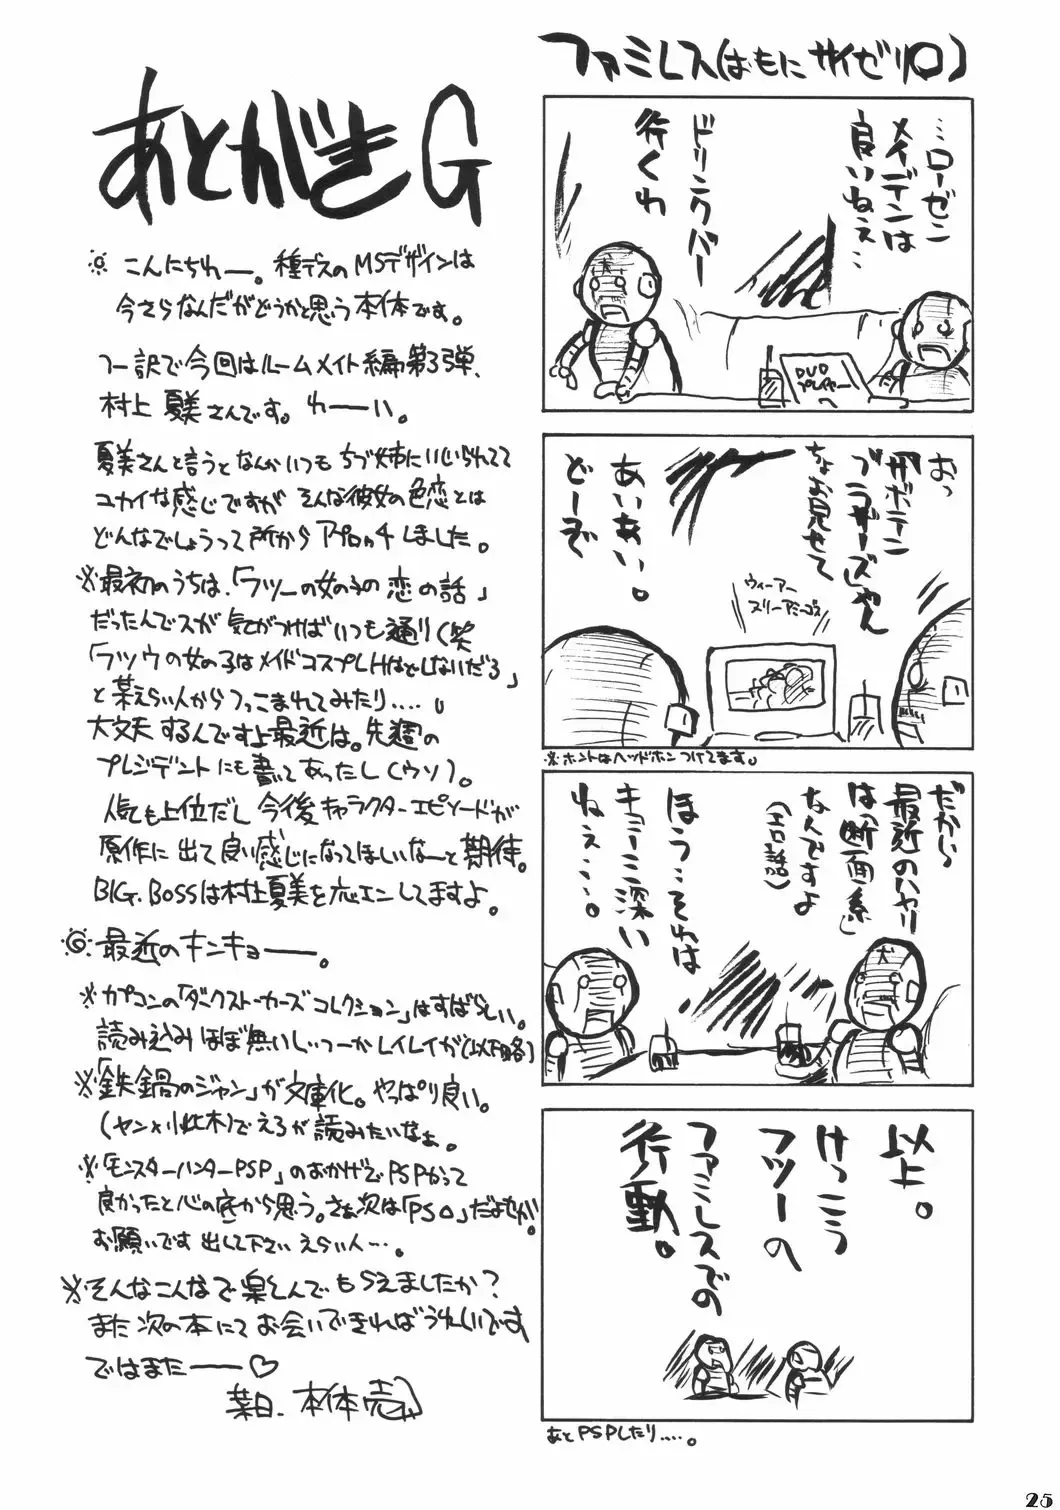 あとがきG
こんにちわー。種デスのMSデザインは
今さらなんだがどうかと思う本体です。
つー訳で今回はルームメイト編第3弾、
村上夏美さんです。わーい。
夏美さんと言うとなんかいつもちづ姉にいじられてて
ユカイな感じですが そんな彼女の色恋とは
どんなでしょうって所からアプローチしました。
※最初のうちは、「フツーの女の子の恋の話」
だったんでスが気がつけばいつも通り(笑
「フツウの女の子はメイドコスプレHはしないだろ」
と某えらい人からつっこまれてみたり‥‥。
大丈夫するんですよ最近は。先週の
プレジデントにも書いてあったし(ウソ)。
人気も上位だし今後キャラクターエピソードが
原作に出て良い感じになってほしいなーと期待。
BIG.BOSSは村上夏美を応エンしてますよ。
最近のキンキョー。
※カプコンの「ダークストーカーズコレクション」はすばらしい。
読み込みほぼ無いし、つーかレイレイが(以下略)
※「鉄鍋のジャン」が文庫化。やっぱり良い。
(ヤン×小此木)でえろが読みたいなぁ。
※「モンスターハンターPSP」のおかげでPSPかって
良かったと心の底から思う。さぁ次は「PSO」だよセガ。
お願いです出して下さいえらい人…。
※そんなこんなで楽しんでもらえましたか?
また次の本にてお会いできればうれしいです
ではまたー♡
某日. 本体売
ファミレス(はもにサイゼリ〇)
…ローゼン
メイデンは
良いねぇ…
ドリンクバー
行くわ
DVD
プレイヤー
おっ
『ザボテン
ブラザーズ』やん
ちょお見せて
あいあい。
どーぞ
ウィーアー
スリーアミーゴス
※ホントはヘッドホンつけてます。
だから
最近のハヤリ
は「断面系」
なんですよ
(エロ話)
ほう‥それは
キョーミ深い
ねぇ‥‥。
以上。
けっこう
フツーの
ファミレスでの
行動。
あとPSPしたり‥‥。
25